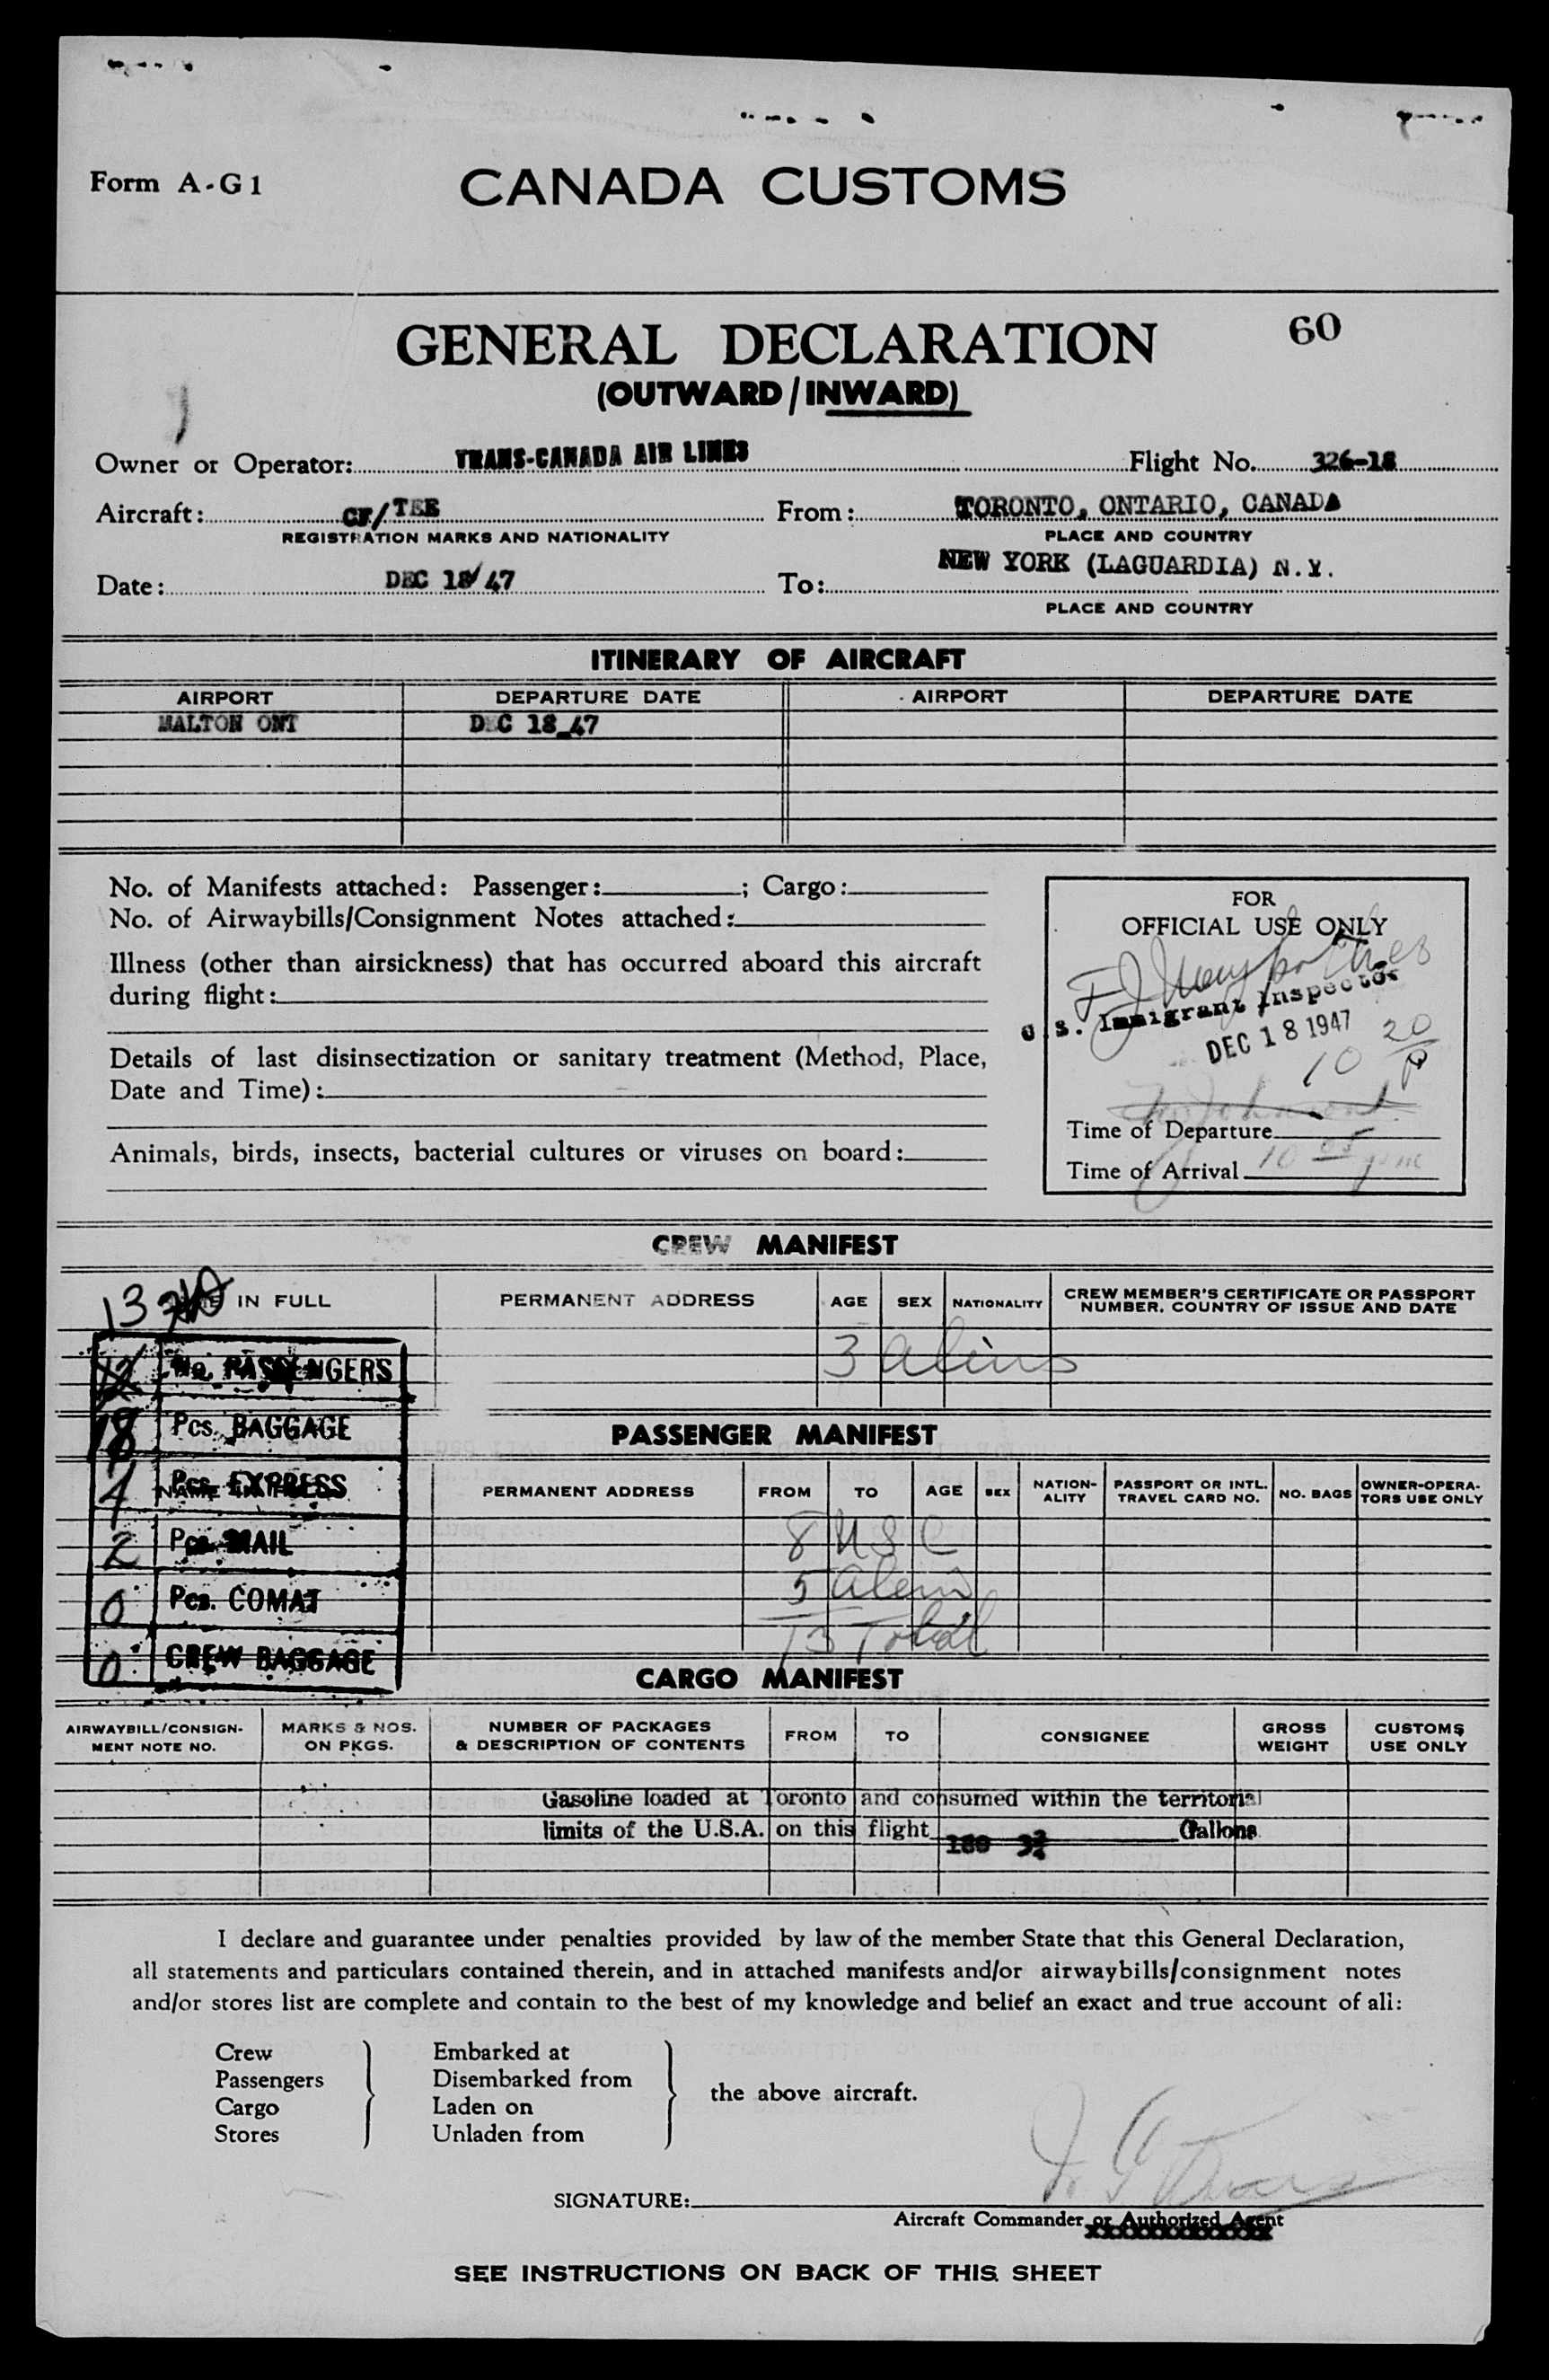 Form A-G1
CANADA CUSTOMS
GENERAL DECLARATION
60
(OUTWARD/INWARD)
Owner or Operator: TRANS-CANADA AIR LINES Flight No. 326-18
Aircraft: CF/TEE From: TORONTO, ONTARIO, CANADA
REGISTRATION MARKS AND NATIONALITY PLACE AND COUNTRY
Date: DEC 18/47 To: NEW YORK (LAGUARDIA) N.Y.
PLACE AND COUNTRY
ITINERARY OF AIRCRAFT
AIRPORT DEPARTURE DATE AIRPORT DEPARTURE DATE
MALTON ONT DEC 18_47
No. of Manifests attached: Passenger: ; Cargo:
No. of Airwaybills/Consignment Notes attached:
Illness (other than airsickness) that has occurred aboard this aircraft
during flight:
Details of last disinsectization or sanitary treatment (Method, Place,
Date and Time):
Animals, birds, insects, bacterial cultures or viruses on board:
FOR
OFFICIAL USE ONLY
U.S. Immigrant Inspector
DEC 18 1947
10 20 P
Time of Departure
Time of Arrival 10 05 pm
CREW MANIFEST
13
IN FULL PERMANENT ADDRESS AGE SEX NATIONALITY CREW MEMBER'S CERTIFICATE OR PASSPORT
NUMBER, COUNTRY OF ISSUE AND DATE
3 aliens
12 No. PASSENGERS
18 Pcs. BAGGAGE
4 Pcs. EXPRESS
2 Pcs. MAIL
0 Pcs. COMAT
0 CREW BAGGAGE
PASSENGER MANIFEST
NAME PERMANENT ADDRESS FROM TO AGE SEX NATION-
ALITY PASSPORT OR INTL.
TRAVEL CARD NO. NO. BAGS OWNER-OPERA-
TORS USE ONLY
8 USC
5 alien
13 Total
CARGO MANIFEST
AIRWAYBILL/CONSIGN-
MENT NOTE NO. MARKS & NOS.
ON PKGS. NUMBER OF PACKAGES
& DESCRIPTION OF CONTENTS FROM TO CONSIGNEE GROSS
WEIGHT CUSTOMS
USE ONLY
Gasoline loaded at Toronto and consumed within the territorial
limits of the U.S.A. on this flight Gallons
I declare and guarantee under penalties provided by law of the member State that this General Declaration,
all statements and particulars contained therein, and in attached manifests and/or airwaybills/consignment notes
and/or stores list are complete and contain to the best of my knowledge and belief an exact and true account of all:
Crew Embarked at
Passengers Disembarked from
the above aircraft.
Cargo Laden on
Stores Unladen from
SIGNATURE:
Aircraft Commander or Authorized Agent
SEE INSTRUCTIONS ON BACK OF THIS SHEET